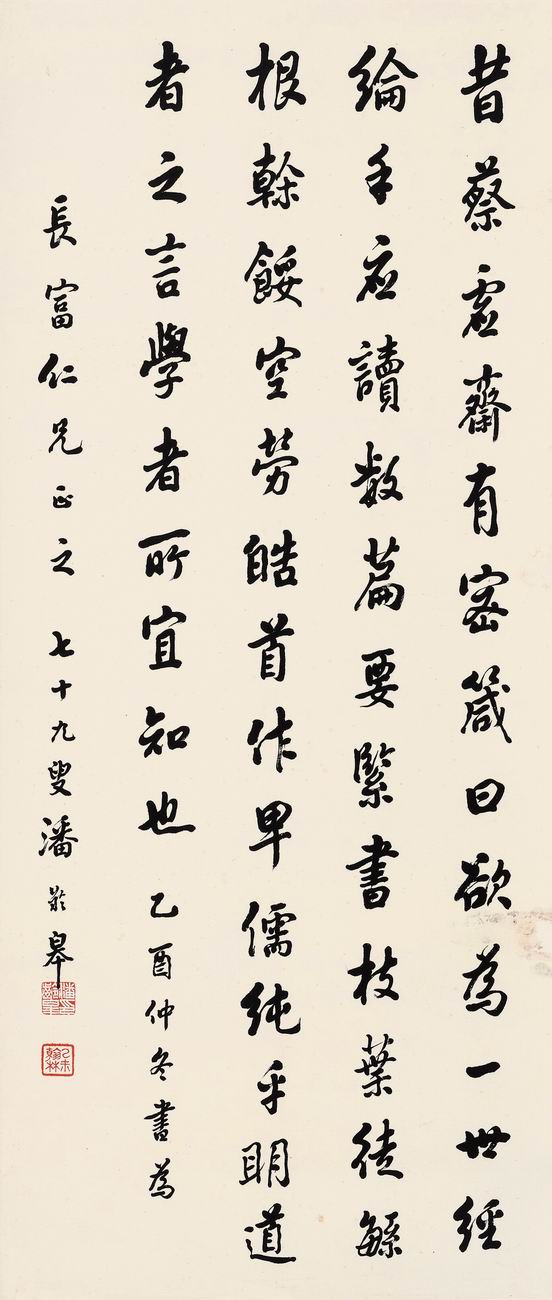 昔蔡虛齋有密箴曰欲為一世經
綸手应讀数篇要緊書枝葉徒緐
根榦餒空勞皓首作卑儒純乎明道
者之言學者所宜知也 乙酉仲冬書為
長富仁兄正之 七十九叟潘齡皋
乙未翰林